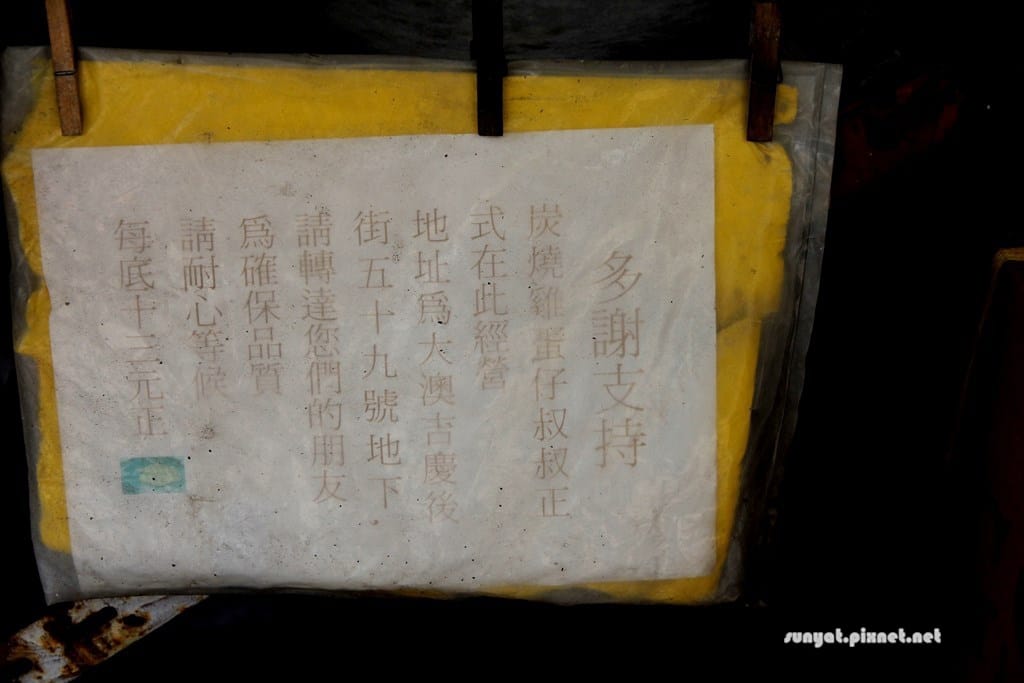 多謝支持
炭燒雞蛋仔叔叔正
式在此經營
地址爲大澳吉慶後
街五十九號地下
請轉達您們的朋友
爲確保品質
請耐心等候
每底十三元正
sunyat.pixnet.net